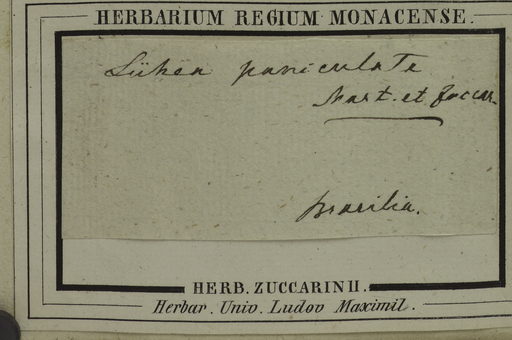 HERBARIUM REGIUM MONACENSE.
Lühea paniculata
Mart. et Zuccar.
Brasilia.
HERB. ZUCCARINII.
Herbar. Univ. Ludov Maximil.